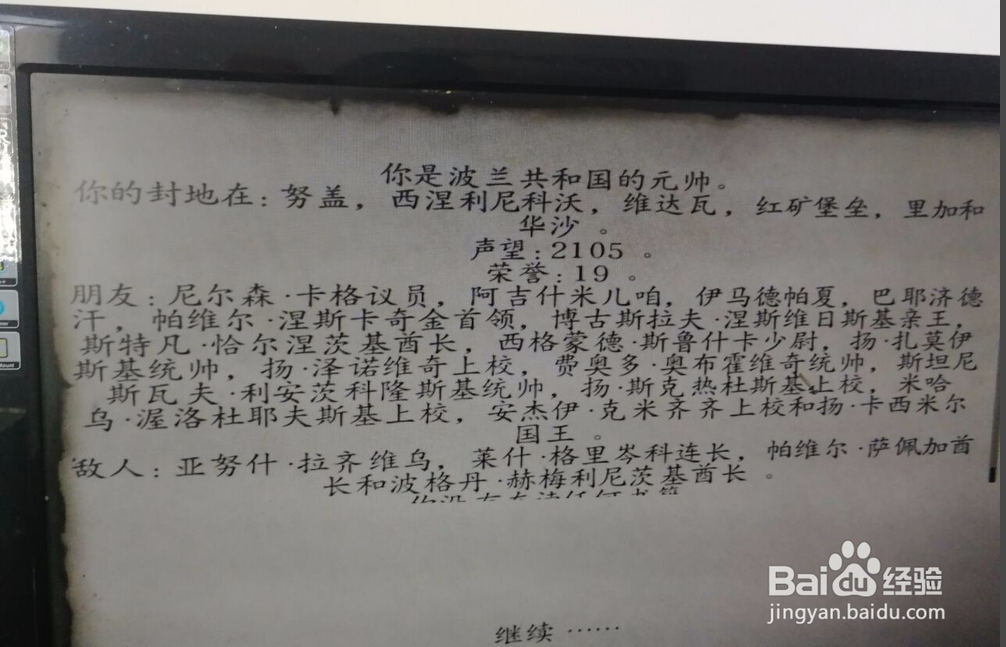 你是波兰共和国的元帅。
你的封地在：努盖，西涅利尼科沃，维达瓦，红矿堡垒，里加和
华沙 。
声望:2105 。
荣誉:19 。
朋友：尼尔森·卡格议员，阿吉什米儿咱，伊马德帕夏，巴耶济德
汗，帕维尔·涅斯卡奇金首领，博古斯拉夫·涅斯维日斯基亲王，
斯特凡·恰尔涅茨基酋长，西格蒙德·斯鲁什卡少尉，扬·扎莫伊
斯基统帅，扬·泽诺维奇上校，费奥多·奥布霍维奇统帅，斯坦尼
斯瓦夫·利安茨科隆斯基统帅，扬·斯克热杜斯基上校，米哈
乌·渥洛杜耶夫斯基上校，安杰伊·克米齐齐上校和扬·卡西米尔
国王 。
敌人：亚努什·拉齐维乌，莱什·格里岑科连长，帕维尔·萨佩加酋
长和波格丹·赫梅利尼茨基酋长 。
继续 ……
Baidu经验
jingyan.baidu.com